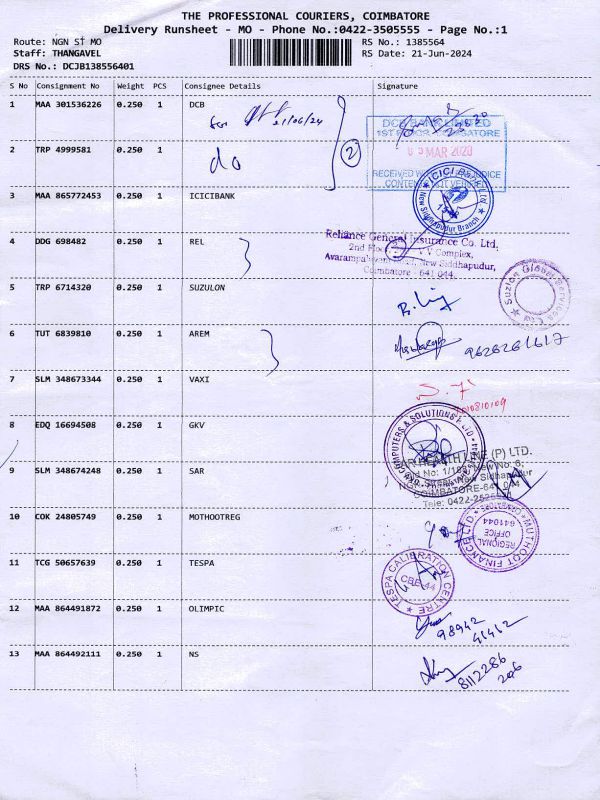 THE PROFESSIONAL COURIERS, COIMBATORE
Delivery Runsheet - MO - Phone No.:0422-3505555 - Page No.:1
Route: NGN ST MO
RS No.: 1385564
Staff: THANGAVEL
RS Date: 21-Jun-2024
DRS No.: DCJB138556401
S No Consignment No Weight PCS Consignee Details Signature
1 MAA 301536226 0.250 1 DCB
21/06/24
2 TRP 4999581 0.250 1
do
2
DCB BANK LIMITED
1ST FLOOR, COIMBATORE
MAR 2020
3 MAA 865772453 0.250 1 ICICIBANK
ICICI BANK LTD
New Siddhapudur Branch
4 DDG 698482 0.250 1 REL
Reliance General Insurance Co. Ltd,
2nd Floor V V Complex,
New Siddhapudur,
Coimbatore - 641 044.
5 TRP 6714320 0.250 1 SUZULON
Suzlon Global Services
6 TUT 6839810 0.250 1 AREM
7 SLM 348673344 0.250 1 VAXI
8 EDQ 16694508 0.250 1 GKV
GKV COMPUTERS & SOLUTIONS P LTD
9 SLM 348674248 0.250 1 SAR
HEALTH LINE (P) LTD.
New Sidhapudur
COIMBATORE-641 044
10 COK 24805749 0.250 1 MOTHOOTREG
MUTHOOT FINANCE LTD
REGIONAL
OFFICE
641044
11 TCG 50657639 0.250 1 TESPA
TESPA CALIBRATION CENTRE
CBE-44
12 MAA 864491872 0.250 1 OLIMPIC
98942
41412
13 MAA 864492111 0.250 1 NS
8112286
206